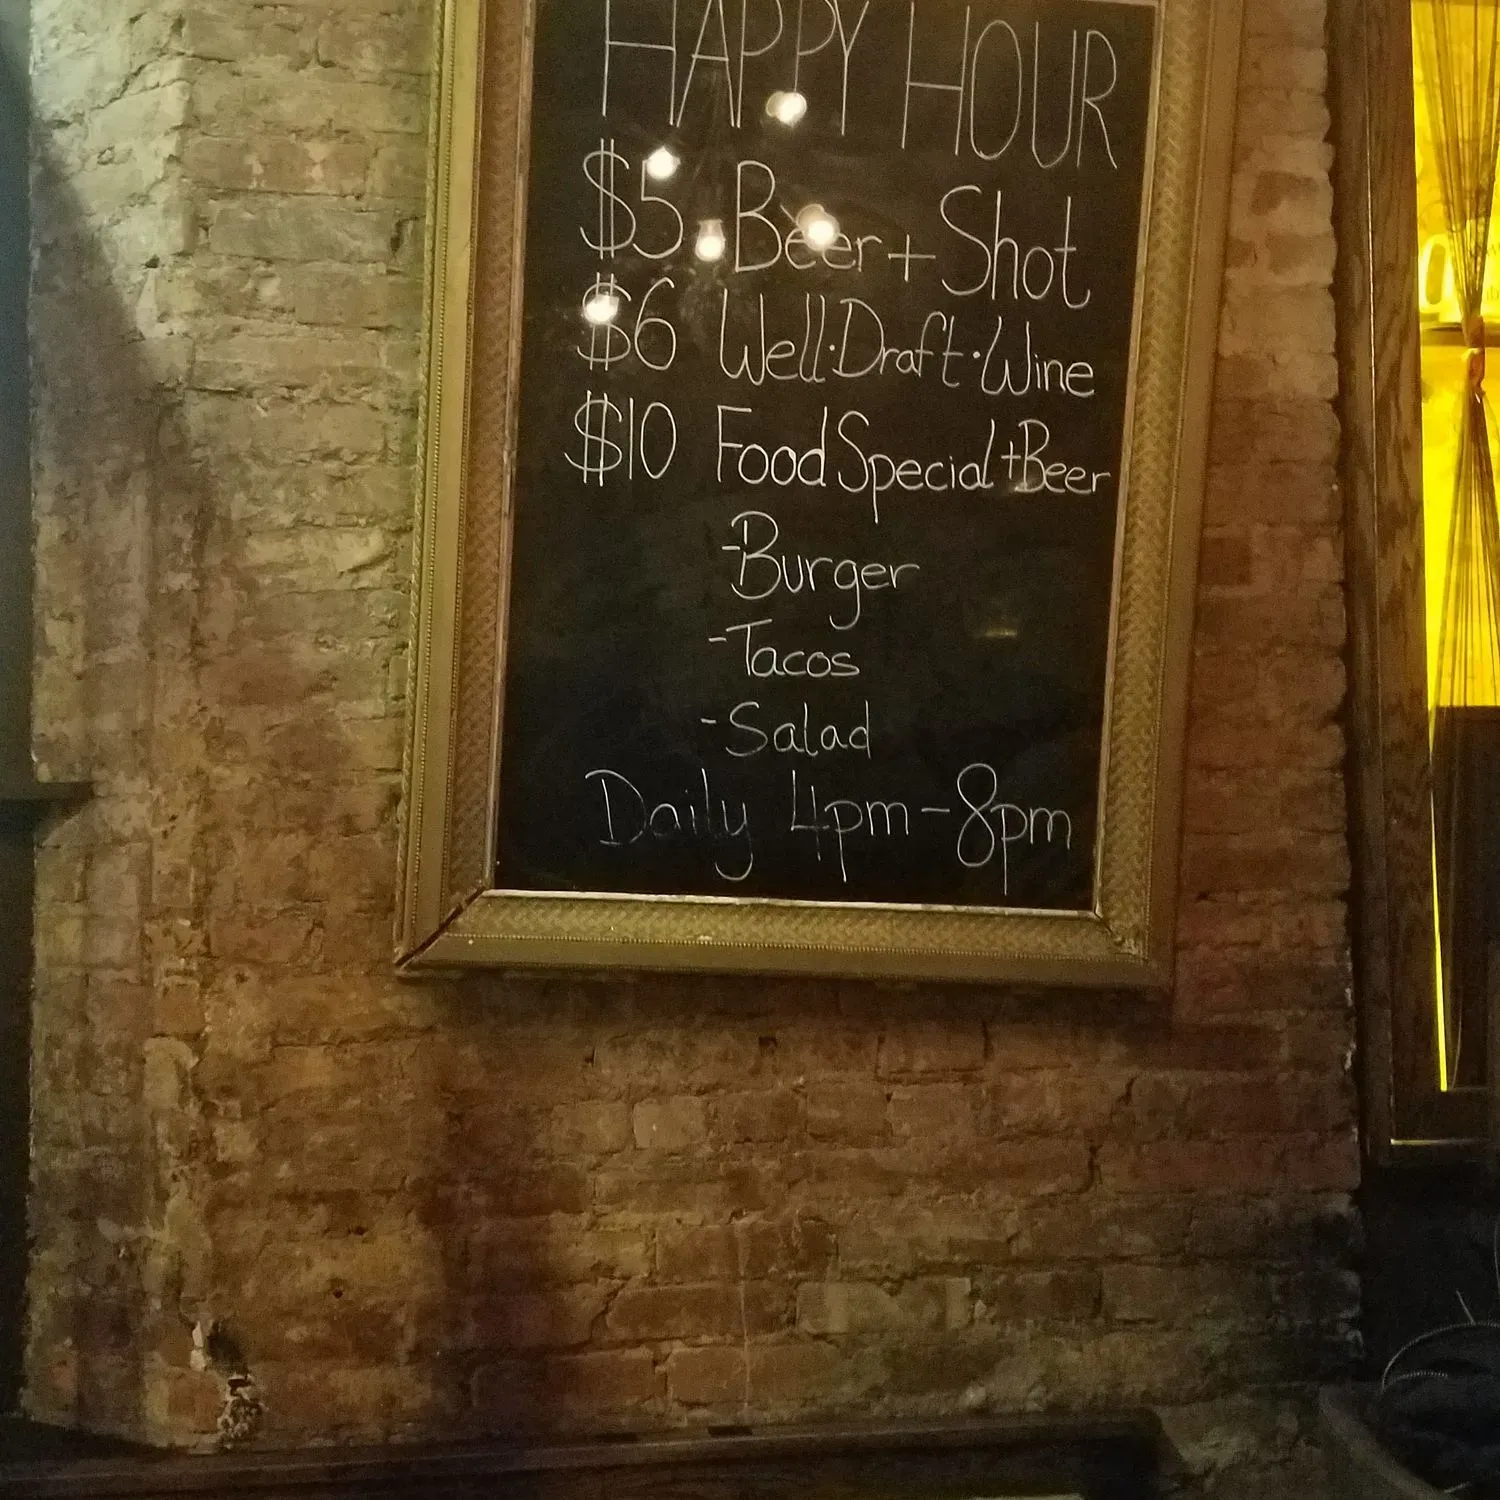 HAPPY HOUR
$5 Beer + Shot
$6 Well · Draft · Wine
$10 Food Special + Beer
- Burger
- Tacos
- Salad
Daily 4pm - 8pm